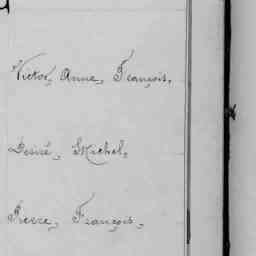 Victor, Anne, François,
Désiré, Michel,
Pierre, François,